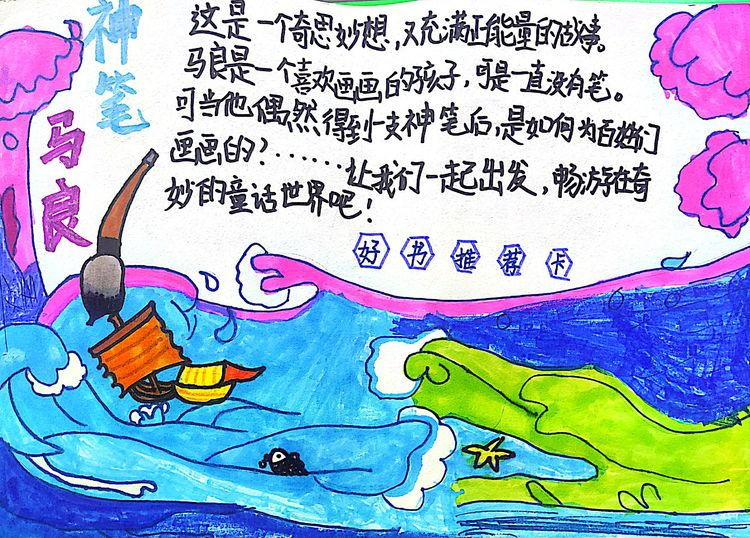 神笔
马良
这是一个奇思妙想，又充满正能量的故事。
马良是一个喜欢画画的孩子，可是一直没有笔。
可当他偶然得到一支神笔后，是如何为百姓们
画画的？……让我们一起出发，畅游在奇
妙的童话世界吧！
好书推荐卡